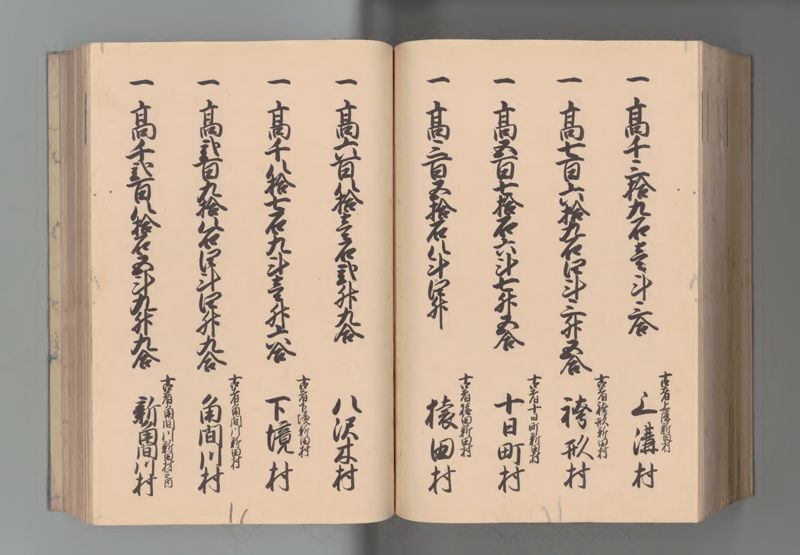 一 高千三拾九石壱斗三合
古者上溝新田村
上溝村
一 高七百六拾九石四斗三升五合
古者袴形新田村
袴形村
一 高五百七拾石六斗七升五合
古者十日町新田村
十日町村
一 高三百五拾石八斗四升
古者猿田新田村
猿田村
一 高六百八拾壱石弐升九合
八沢木村
一 高千八拾七石九斗壱升六合
古者下境新田村
下境村
一 高弐百九拾八石四斗四升九合
古者角間川新田村
角間川村
一 高千弐百八拾石五斗九升九合
古者角間川新田村之内
新角間川村